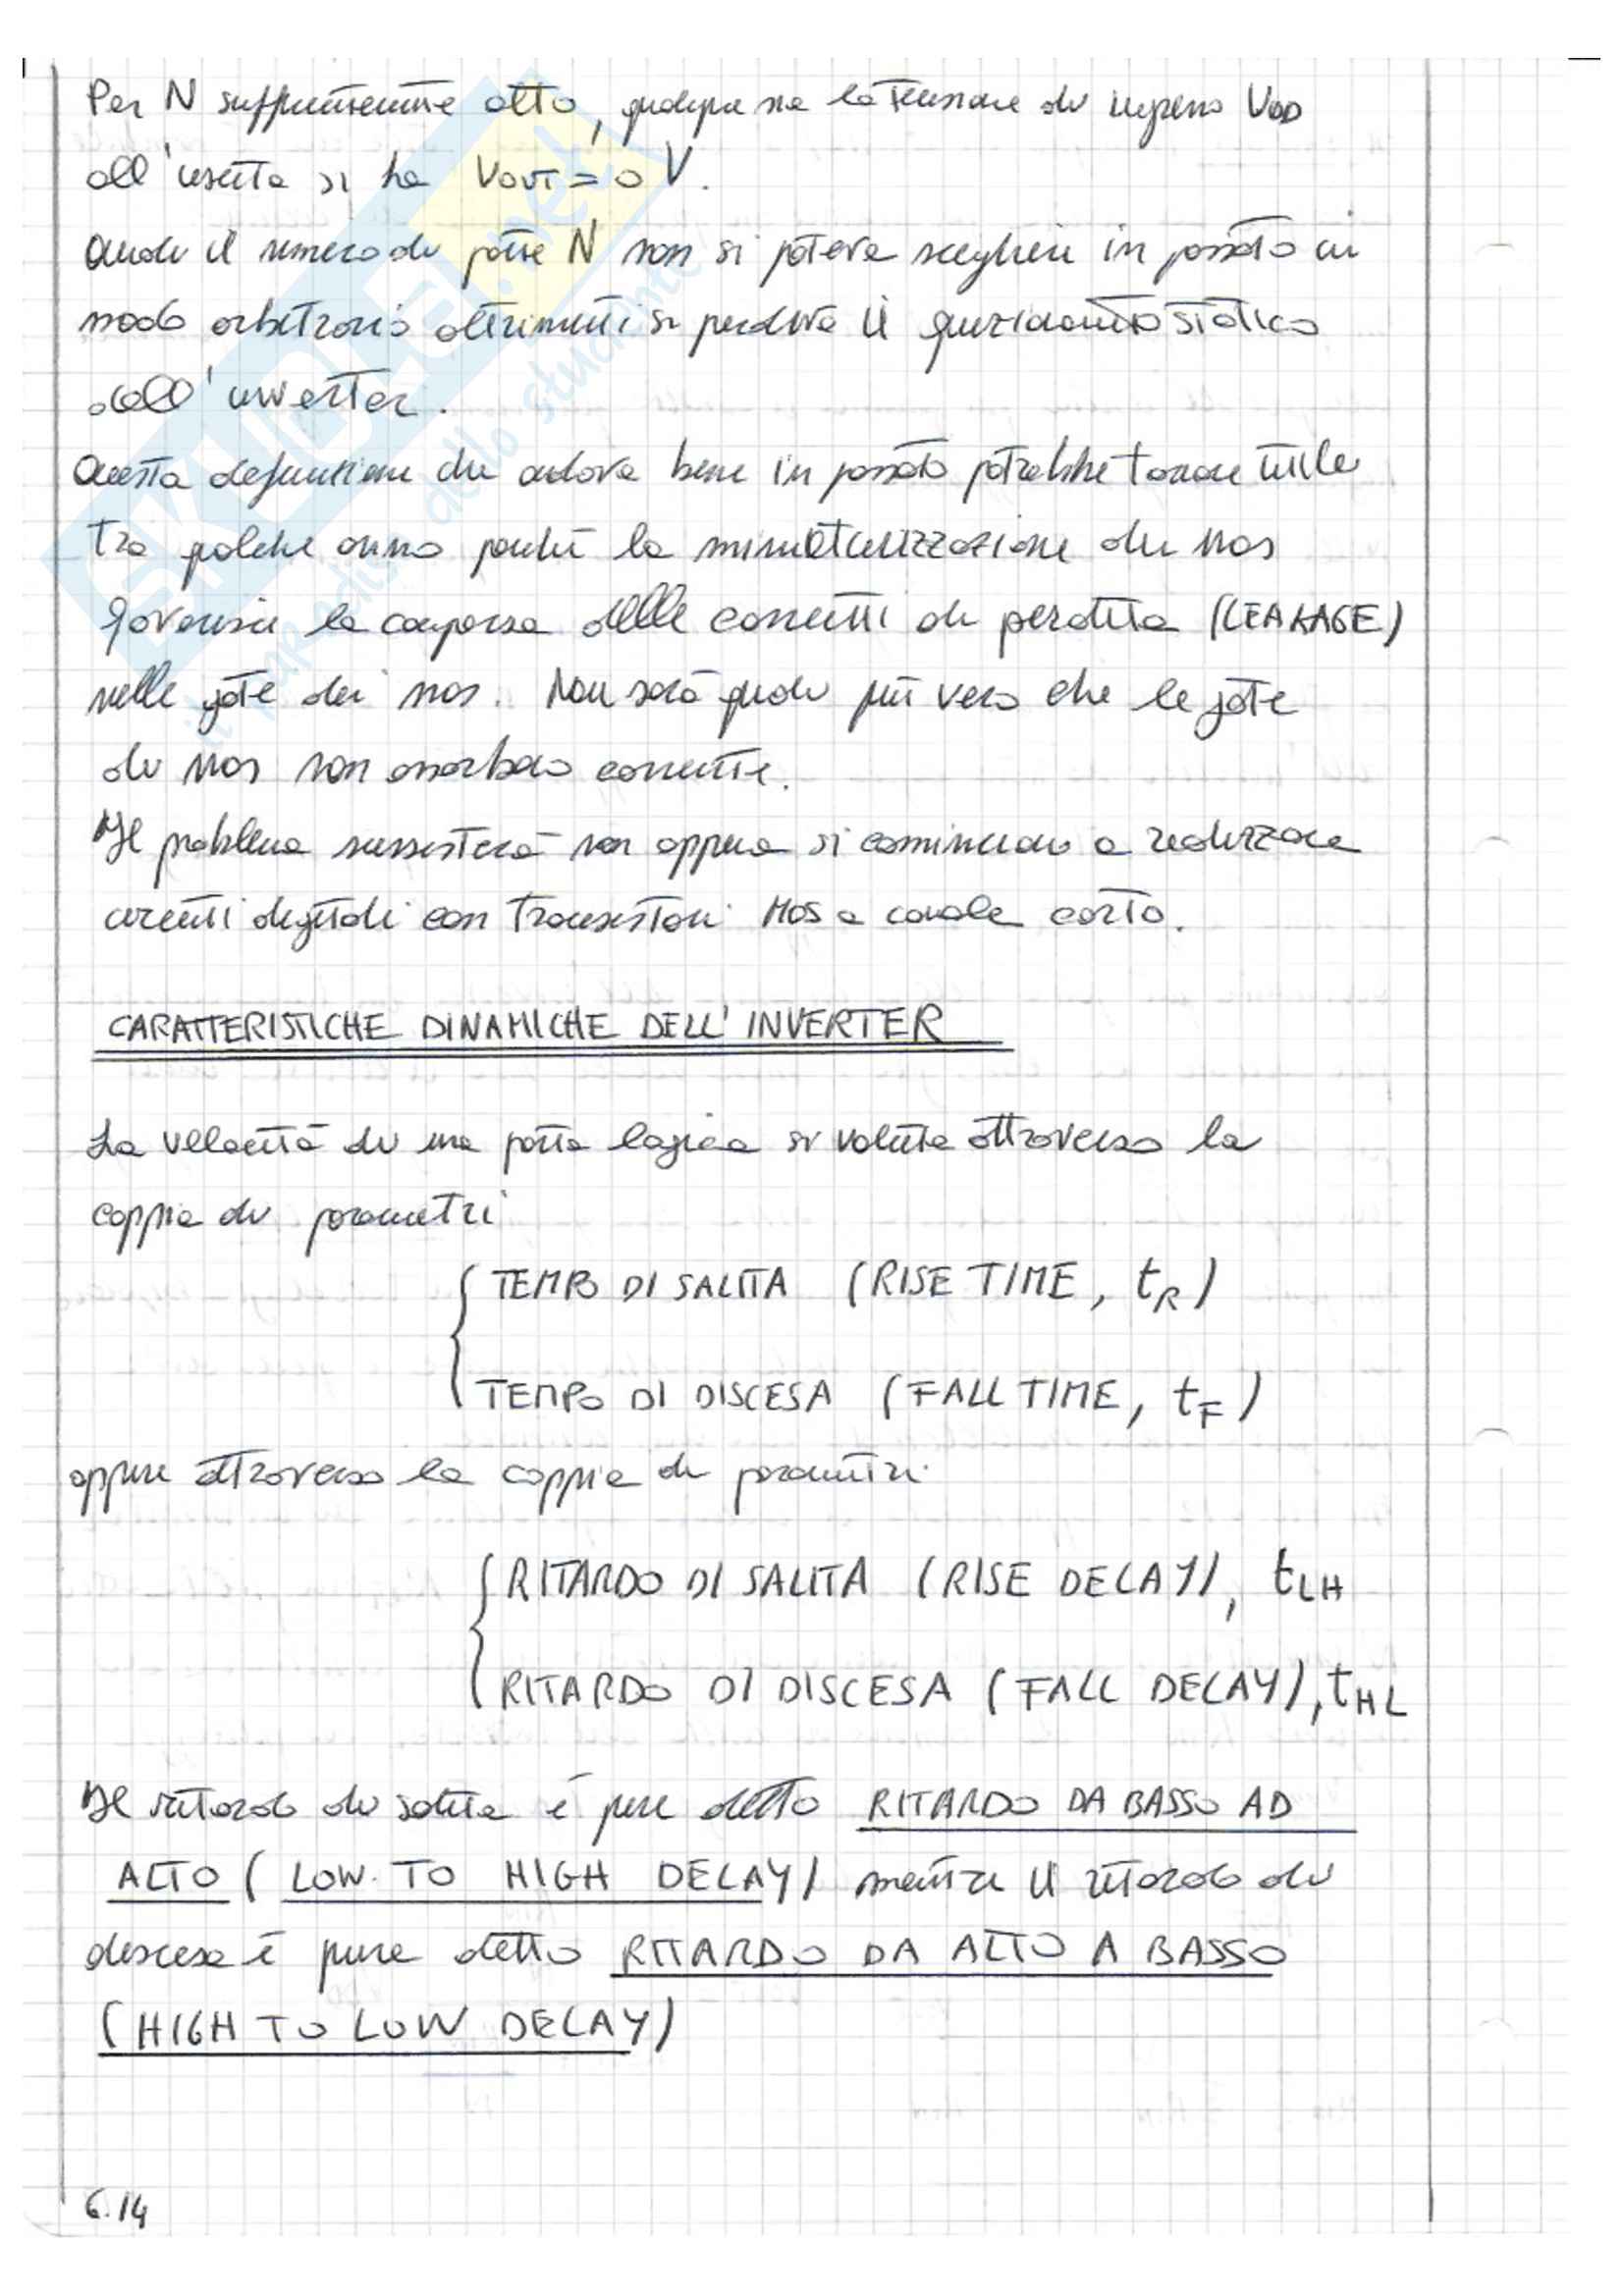 Per N sufficientemente alto, qualunque sia la tensione di ingresso VDD
all'uscita si ha VOUT = 0 V.
Quindi il numero di porte N non si poteva scegliere in passato in
modo arbitrario altrimenti si perdeva il funzionamento statico
dell'inverter.
Questa definizione che andava bene in passato potrebbe tornare utile
tra qualche anno perché la miniaturizzazione dei Mos
favorisce la comparsa delle correnti di perdita (LEAKAGE)
nelle gate dei mos. Non sarà quindi più vero che le gate
di Mos non assorbono corrente.
Il problema sussisterà non appena si cominciano a realizzare
circuiti digitali con transistori MOS a canale corto.
CARATTERISTICHE DINAMICHE DELL'INVERTER
La velocità di una porta logica si valuta attraverso la
coppia di parametri
TEMPO DI SALITA (RISE TIME, tR)
TEMPO DI DISCESA (FALL TIME, tF)
oppure attraverso la coppia di parametri
RITARDO DI SALITA (RISE DELAY), tLH
RITARDO DI DISCESA (FALL DELAY), tHL
Il ritardo di salita è pure detto RITARDO DA BASSO AD
ALTO (LOW TO HIGH DELAY) mentre il ritardo di
discesa è pure detto RITARDO DA ALTO A BASSO
(HIGH TO LOW DELAY)
6.14
SKUOLA.net
il paradiso dello studente